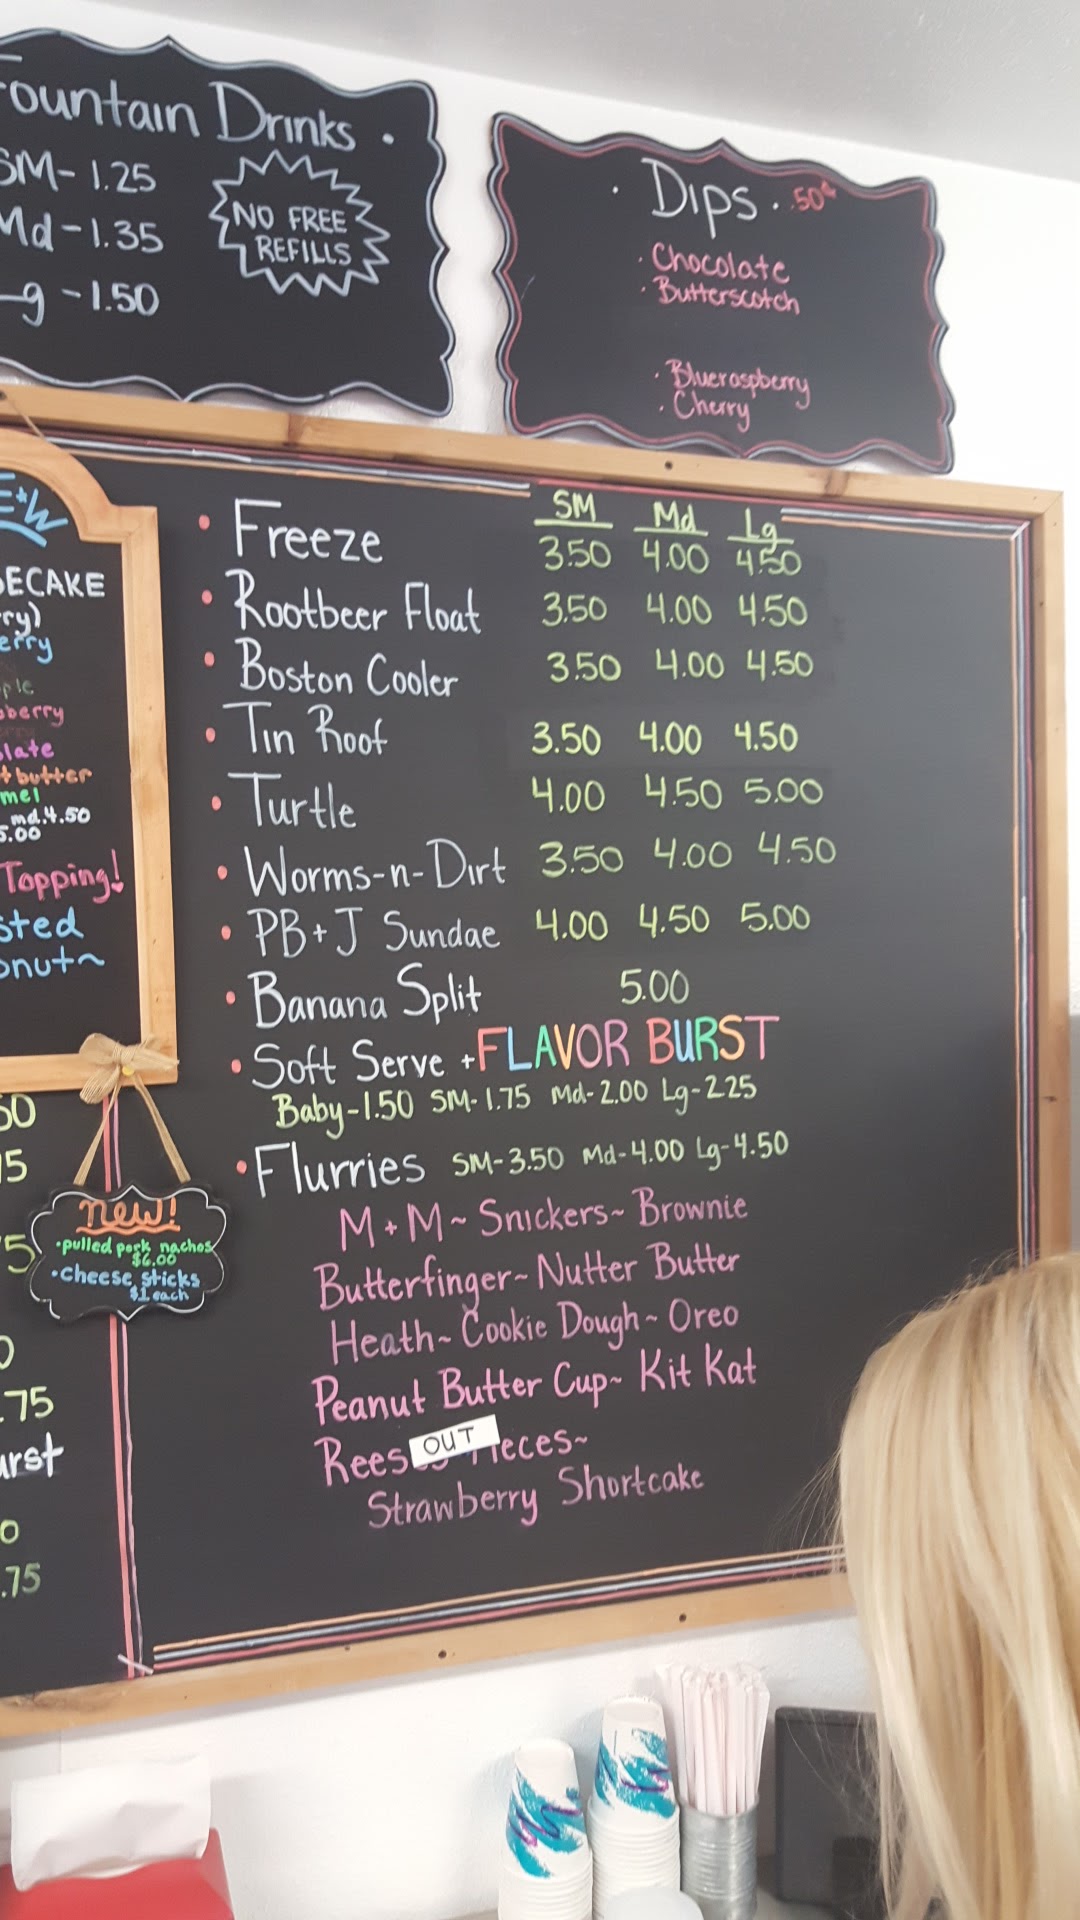 Fountain Drinks
SM- 1.25
Md-1.35
Lg -1.50
NO FREE
REFILLS
· Dips · .50¢
· Chocolate
· Butterscotch
· Blueraspberry
· Cherry
SM Md Lg
• Freeze 3.50 4.00 4.50
• Rootbeer Float 3.50 4.00 4.50
• Boston Cooler 3.50 4.00 4.50
• Tin Roof 3.50 4.00 4.50
• Turtle 4.00 4.50 5.00
• Worms-n-Dirt 3.50 4.00 4.50
• PB+J Sundae 4.00 4.50 5.00
• Banana Split 5.00
• Soft Serve + FLAVOR BURST
Baby-1.50 SM-1.75 Md-2.00 Lg-2.25
• Flurries SM-3.50 Md-4.00 Lg-4.50
M+M~ Snickers~ Brownie
Butterfinger~ Nutter Butter
Heath~ Cookie Dough~ Oreo
Peanut Butter Cup~ Kit Kat
Reeses Pieces~
OUT
Strawberry Shortcake
ECAKE
erry
berry
late
butter
mel
md.4.50
5.00
Topping!
new!
•pulled pork nachos
$6.00
•cheese sticks
$1 each
.75
.75